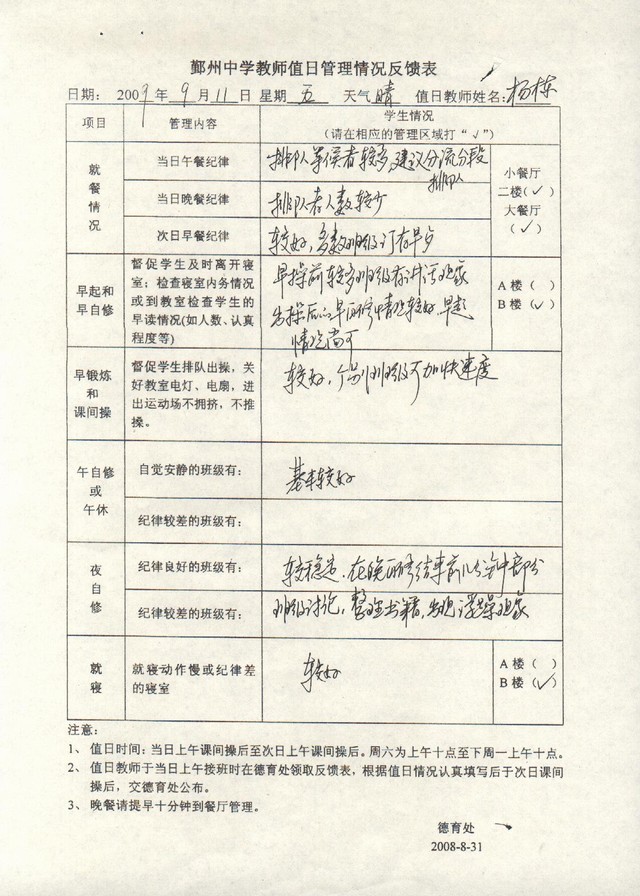 鄞州中学教师值日管理情况反馈表
日期: 2009 年 9 月 11 日 星期 五 天气 晴 值日教师姓名: 杨栋
项目 管理内容 学生情况
(请在相应的管理区域打“√”)
就餐情况
当日午餐纪律 排队等候者较多,建议分流分段
排队
当日晚餐纪律 排队者人数较少
次日早餐纪律 较好,多数班级订有早点
小餐厅
二楼(√)
大餐厅
(√)
早起和
早自修
督促学生及时离开寝
室;检查寝室内务情况
或到教室检查学生的
早读情况(如人数、认真
程度等)
早操前较多班级有讲话现象
出操后的早自修情况较好,早起
情况尚可
A 楼( )
B 楼(√)
早锻炼
和
课间操
督促学生排队出操,关
好教室电灯、电扇,进
出运动场不拥挤,不推
搡。
较好,个别班级可加快速度
午自修
或
午休
自觉安静的班级有: 基本较好
纪律较差的班级有:
夜自修
纪律良好的班级有: 较稳定,在晚自修结束前几分钟中部分
纪律较差的班级有: 班级讨论,整理书籍,出现嘈杂现象
就寝
就寝动作慢或纪律差
的寝室
较好
A 楼( )
B 楼(√)
注意:
1、 值日时间:当日上午课间操后至次日上午课间操后。周六为上午十点至下周一上午十点。
2、 值日教师于当日上午接班时在德育处领取反馈表,根据值日情况认真填写后于次日课间
操后,交德育处公布。
3、 晚餐请提早十分钟到餐厅管理。
德育处
2008-8-31